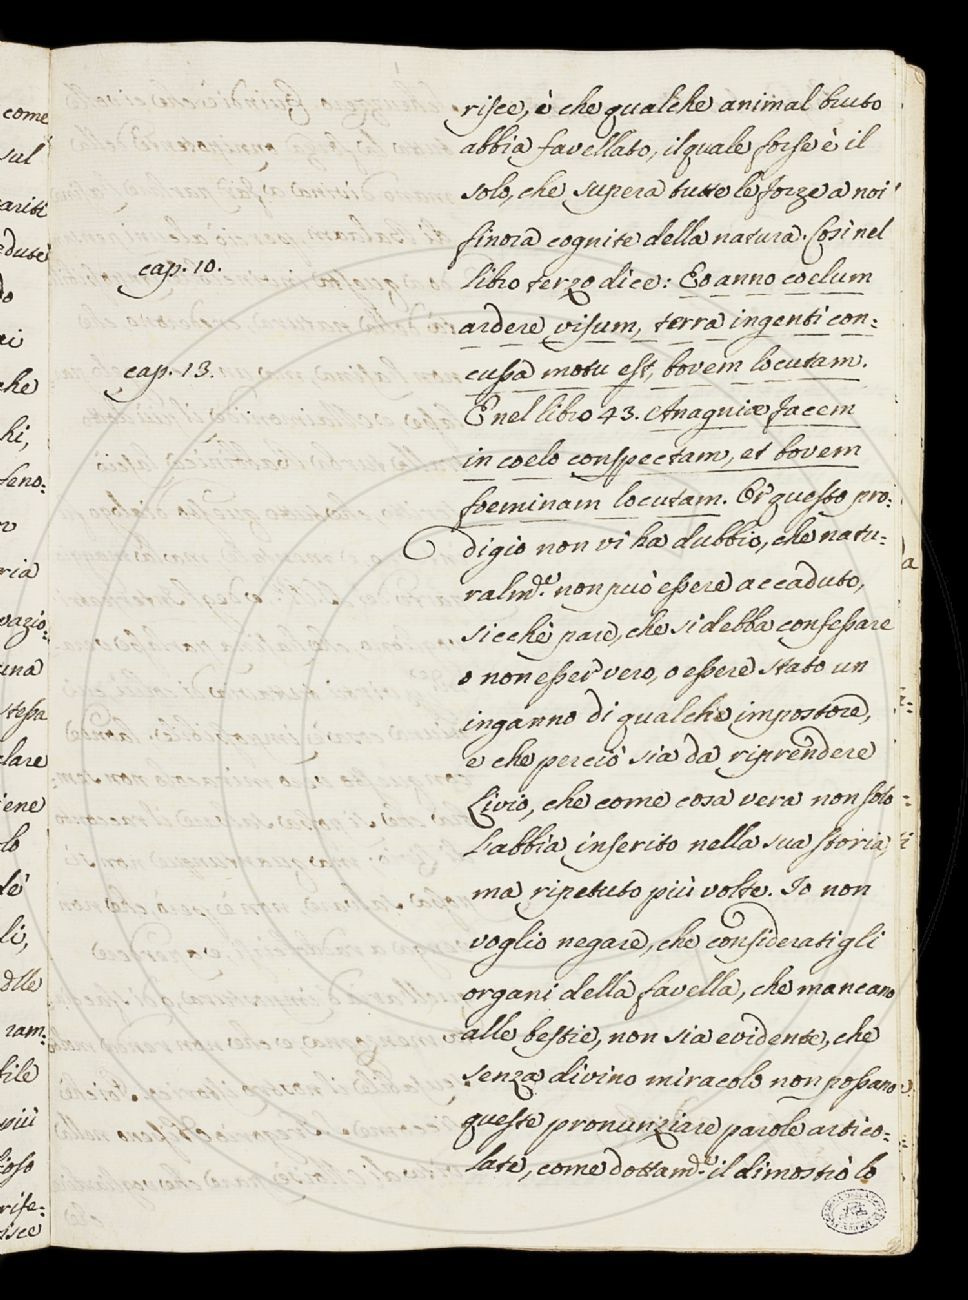 risce, è che qualche animal bruto
abbia favellato, il quale forse è il
solo, che supera tutte le forze a noi
finora cognite della natura. Così nel
cap. 10.
libro terzo dice: Eo anno coelum
ardere visum, terra ingenti con=
cap. 13.
cussa motu est, bovem locutam.
E nel libro 43. Anagniæ facem
in coelo conspectam, et bovem
foeminam locutam. Or questo pro=
digio non vi ha dubbio, che natu=
ralmte. non può essere accaduto,
sicchè pare, che si debba confessare
o non esser vero, o essere stato un
inganno di qualche impostore,
e che perciò sia da riprendere
Livio, che come cosa vera non solo
l'abbia inserito nella sua storia,
ma ripetuto più volte. Io non
voglio negare, che considerati gli
organi della favella, che mancano
alle bestie, non sia evidente, che
senza divino miracolo non possano
queste pronunziare parole artico=
late, come dottamte. il dimostrò lo
come
sal
edute
ai
che
hi,
feno=
ria
vazio=
una
stessa
lare
iene
lo
li,
dlle
ram=
bile
più
rife=
isce